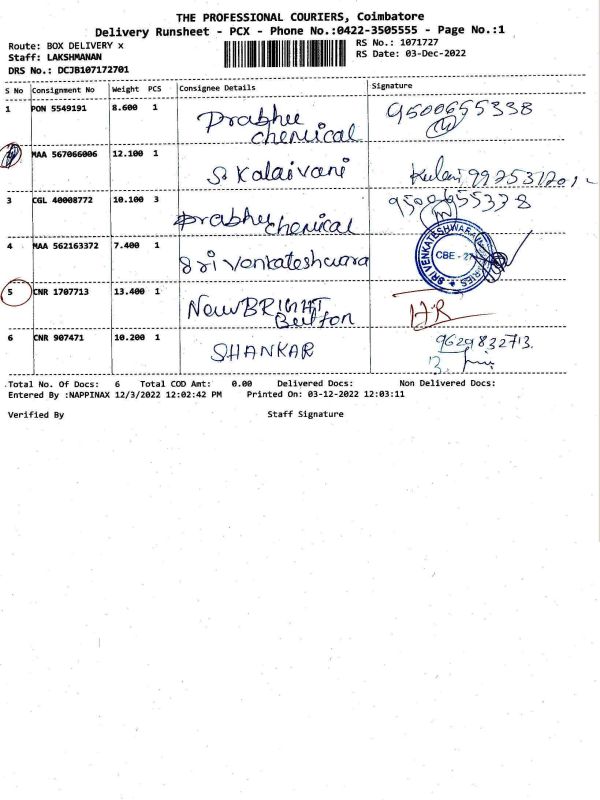 THE PROFESSIONAL COURIERS, Coimbatore
Delivery Runsheet - PCX - Phone No.:0422-3505555 - Page No.:1
Route: BOX DELIVERY x
Staff: LAKSHMANAN
DRS No.: DCJB107172701
RS No.: 1071727
RS Date: 03-Dec-2022
S No Consignment No Weight PCS Consignee Details Signature
1 PON 5549191 8.600 1 Prabhu chemical 9500655338
2 MAA 567066006 12.100 1 S. Kalaivani
3 CGL 40008772 10.100 3 Prabhu chemical 9500655338
4 MAA 562163372 7.400 1 Sri Venkateshwara
SRI VENKATESHWARA
CBE - 27
5 CNR 1707713 13.400 1 New BRIGHT Button
6 CNR 907471 10.200 1 SHANKAR 9629832713
Total No. Of Docs: 6 Total COD Amt: 0.00 Delivered Docs: Non Delivered Docs:
Entered By :NAPPINAX 12/3/2022 12:02:42 PM Printed On: 03-12-2022 12:03:11
Verified By Staff Signature